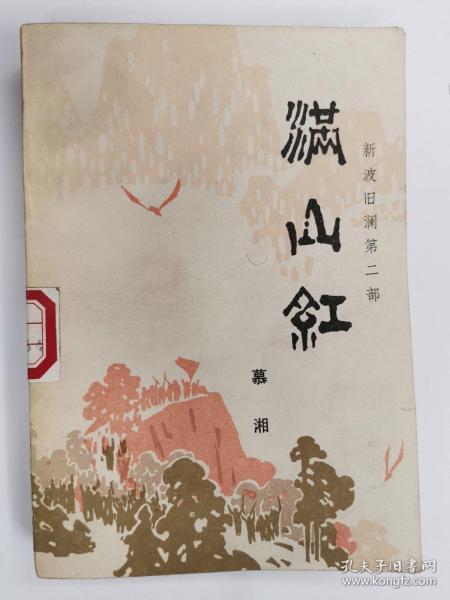 新波旧澜第二部
满山红
慕湘
孔夫子旧书网
www.kongfz.com